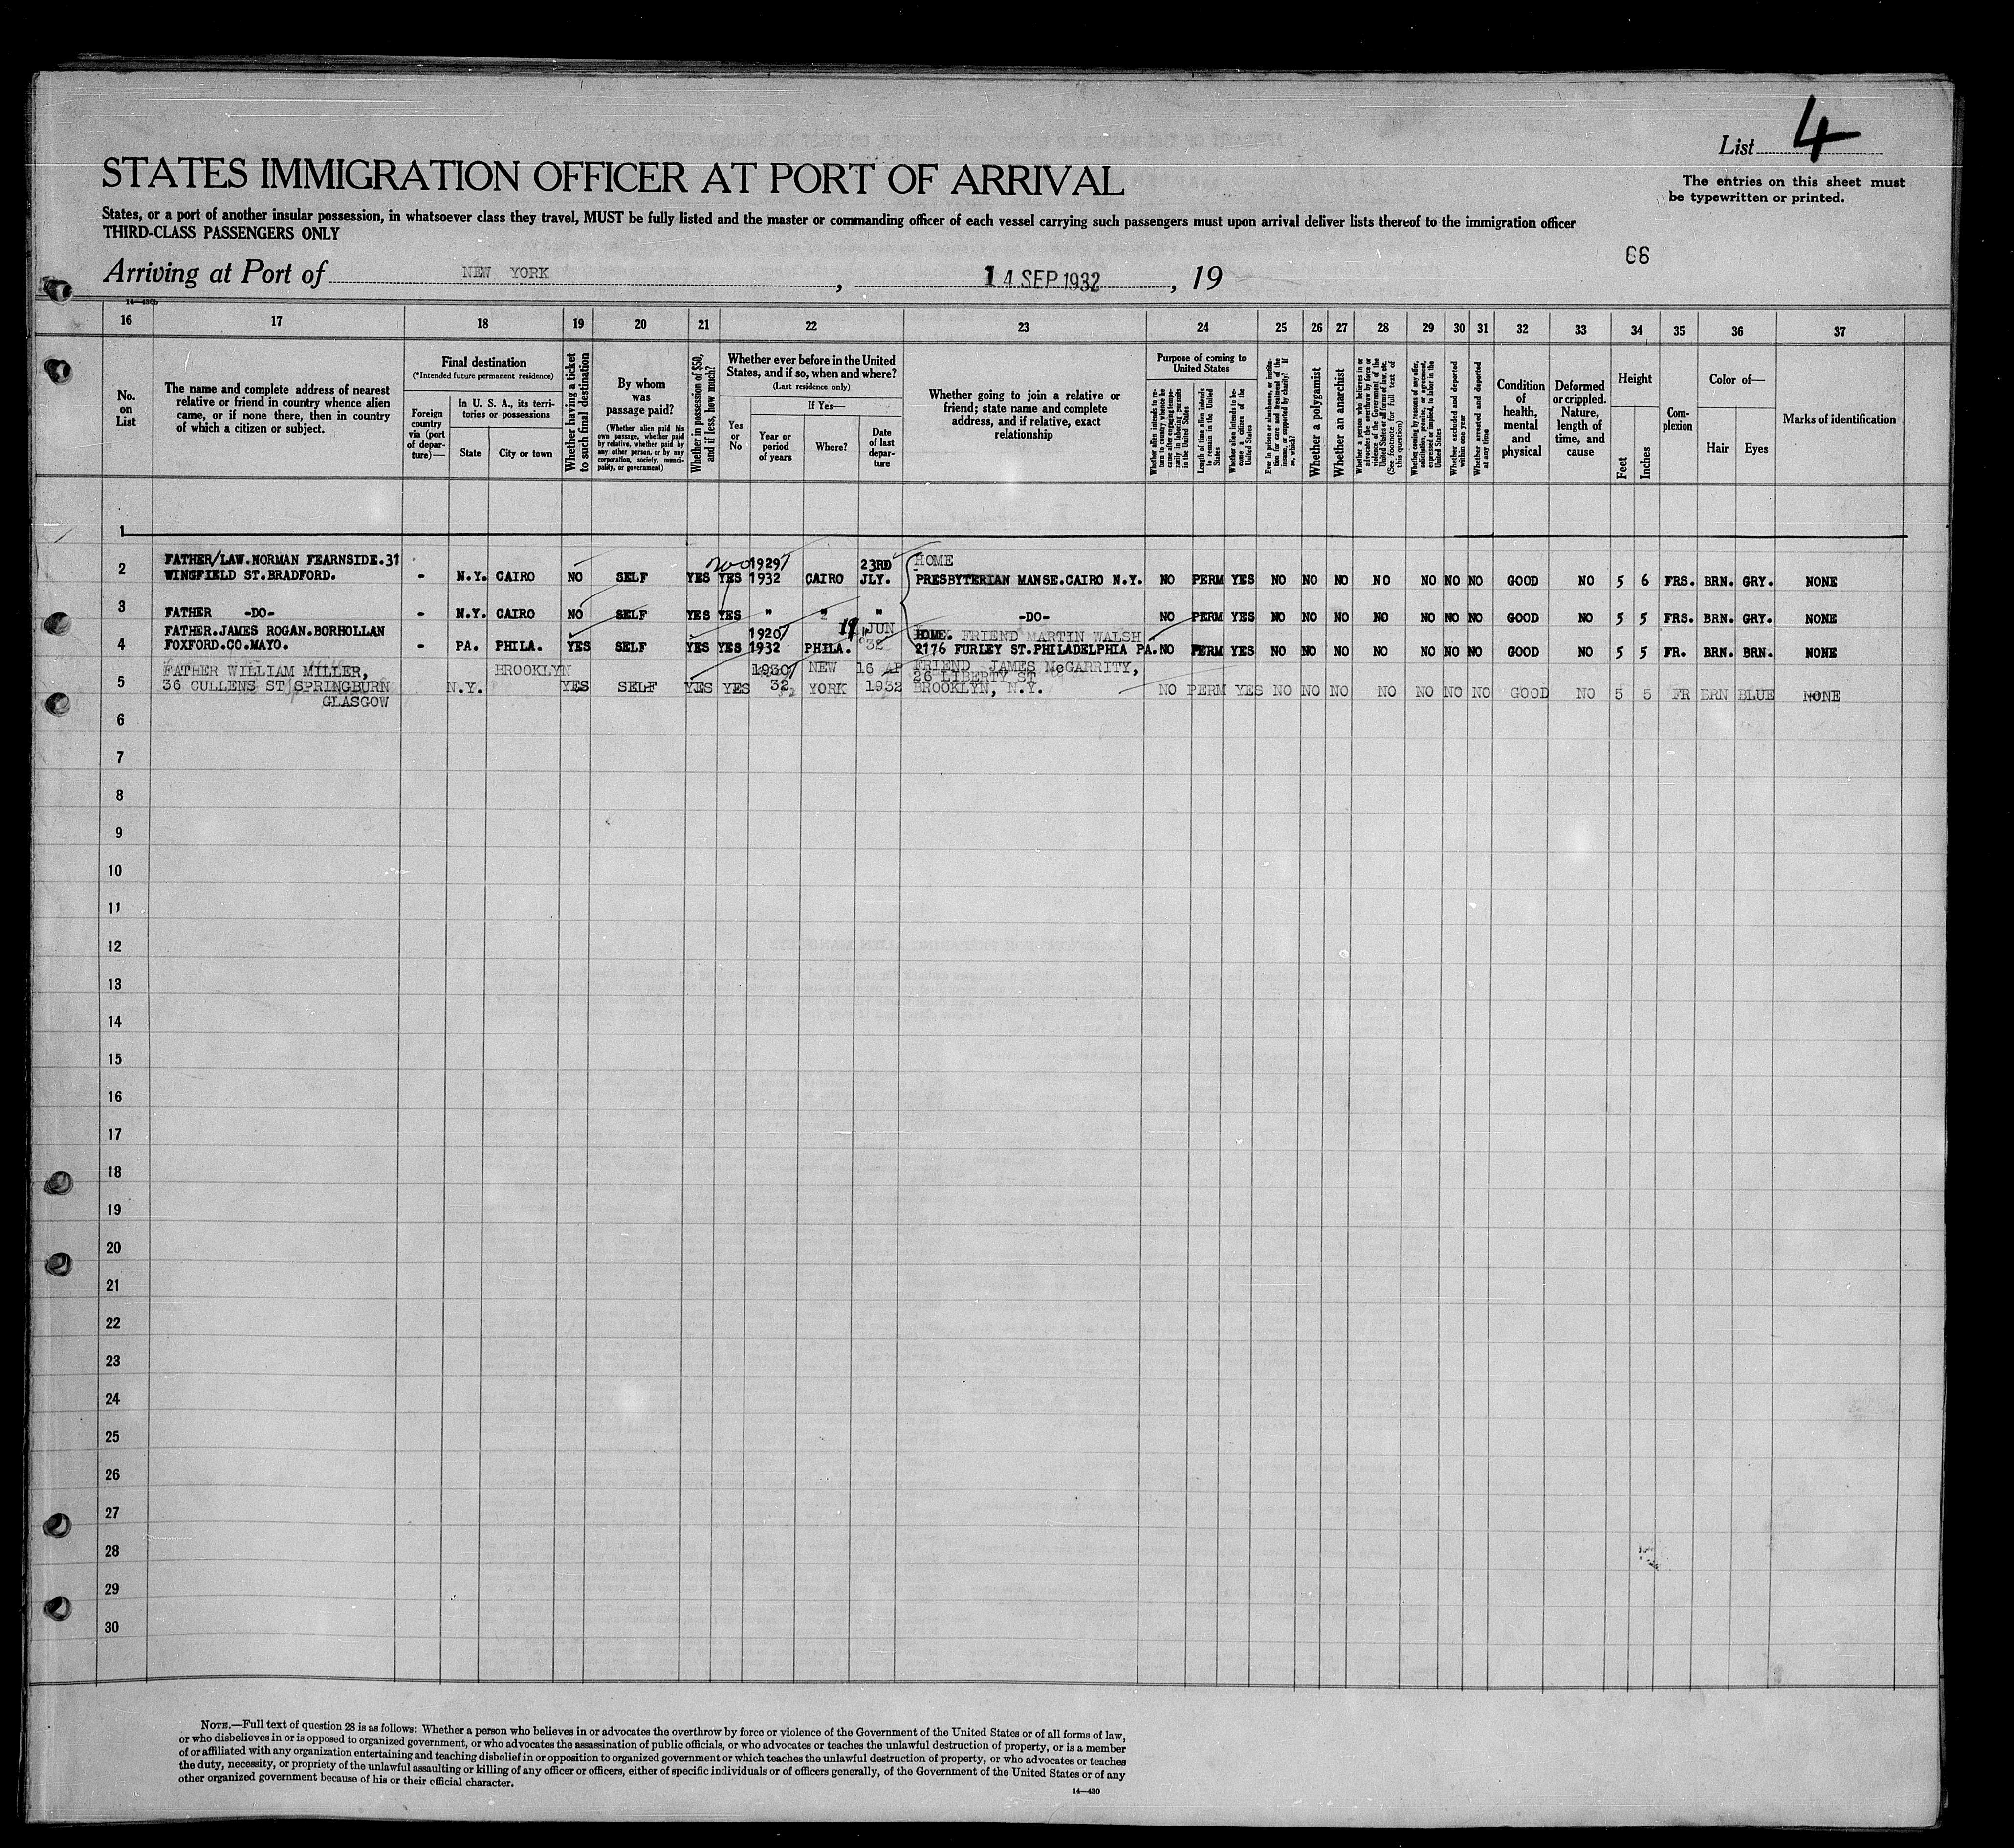 List 4
STATES IMMIGRATION OFFICER AT PORT OF ARRIVAL
The entries on this sheet must
be typewritten or printed.
States, or a port of another insular possession, in whatsoever class they travel, MUST be fully listed and the master or commanding officer of each vessel carrying such passengers must upon arrival deliver lists thereof to the immigration officer
THIRD-CLASS PASSENGERS ONLY
66
Arriving at Port of NEW YORK, 14 SEP 1932, 19
14—430b
16 17 18 19 20 21 22 23 24 25 26 27 28 29 30 31 32 33 34 35 36 37
No.
on
List
The name and complete address of nearest
relative or friend in country whence alien
came, or if none there, then in country
of which a citizen or subject.
Final destination
(*Intended future permanent residence)
Foreign
country
via (port
of depar-
ture)—
In U. S. A., its terri-
tories or possessions
State
City or town
Whether having a ticket
to such final destination
By whom
was
passage paid?
(Whether alien paid his
own passage, whether paid
by relative, whether paid by
any other person, or by any
corporation, society, munici-
pality, or government)
Whether in possession of $50,
and if less, how much?
Whether ever before in the United
States, and if so, when and where?
(Last residence only)
Yes
or
No
If Yes—
Year or
period
of years
Where?
Date
of last
depar-
ture
Whether going to join a relative or
friend; state name and complete
address, and if relative, exact
relationship
Purpose of coming to
United States
Whether alien intends to re-
turn to country whence he
came after engaging tempo-
rarily in laboring pursuits
in the United States
Length of time alien intends
to remain in the United
States
Whether alien intends to be-
come a citizen of the
United States
Ever in prison or almshouse, or institu-
tion for care and treatment of the
insane, or supported by charity? If
so, which?
Whether a polygamist
Whether an anarchist
Whether a person who believes in or
advocates the overthrow by force or
violence of the Government of the
United States or all forms of law, etc.
(See footnote for full text of
this question)
Whether coming by reason of any offer,
solicitation, promise, or agreement,
expressed or implied, to labor in the
United States
Whether excluded and deported
within one year
Whether arrested and deported
at any time
Condition
of
health,
mental
and
physical
Deformed
or crippled.
Nature,
length of
time, and
cause
Height
Feet
Inches
Com-
plexion
Color of—
Hair
Eyes
Marks of identification
1
FATHER/LAW.NORMAN FEARNSIDE.31 1929/ 23RD HOME
2 WINGFIELD ST.BRADFORD. - N.Y. CAIRO NO SELF YES YES 1932 CAIRO JLY. PRESBYTERIAN MANSE.CAIRO N.Y. NO PERM YES NO NO NO NO NO NO NO GOOD NO 5 6 FRS. BRN. GRY. NONE
3 FATHER -DO- - N.Y. CAIRO NO SELF YES YES " " " -DO- NO PERM YES NO NO NO NO NO NO NO GOOD NO 5 5 FRS. BRN. GRY. NONE
FATHER.JAMES ROGAN.BORHOLLAN 1920/ 19 JUN HOME. FRIEND MARTIN WALSH
4 FOXFORD.CO.MAYO. - PA. PHILA. YES SELF YES YES 1932 PHILA. 32 2176 FURLEY ST.PHILADELPHIA PA. NO PERM YES NO NO NO NO NO NO NO GOOD NO 5 5 FR. BRN. BRN. NONE
FATHER WILLIAM MILLER, BROOKLYN 1930/ NEW 16 AP FRIEND JAMES McGARRITY,
26 LIBERTY ST
5 36 CULLENS ST SPRINGBURN N.Y. YES SELF YES YES 32 YORK 1932 BROOKLYN, N.Y. NO PERM YES NO NO NO NO NO NO NO GOOD NO 5 5 FR BRN BLUE NONE
GLASGOW
6
7
8
9
10
11
12
13
14
15
16
17
18
19
20
21
22
23
24
25
26
27
28
29
30
NOTE.—Full text of question 28 is as follows: Whether a person who believes in or advocates the overthrow by force or violence of the Government of the United States or of all forms of law,
or who disbelieves in or is opposed to organized government, or who advocates the assassination of public officials, or who advocates or teaches the unlawful destruction of property, or is a member
of or affiliated with any organization entertaining and teaching disbelief in or opposition to organized government or which teaches the unlawful destruction of property, or who advocates or teaches
the duty, necessity, or propriety of the unlawful assaulting or killing of any officer or officers, either of specific individuals or of officers generally, of the Government of the United States or of any
other organized government because of his or their official character.
14—430